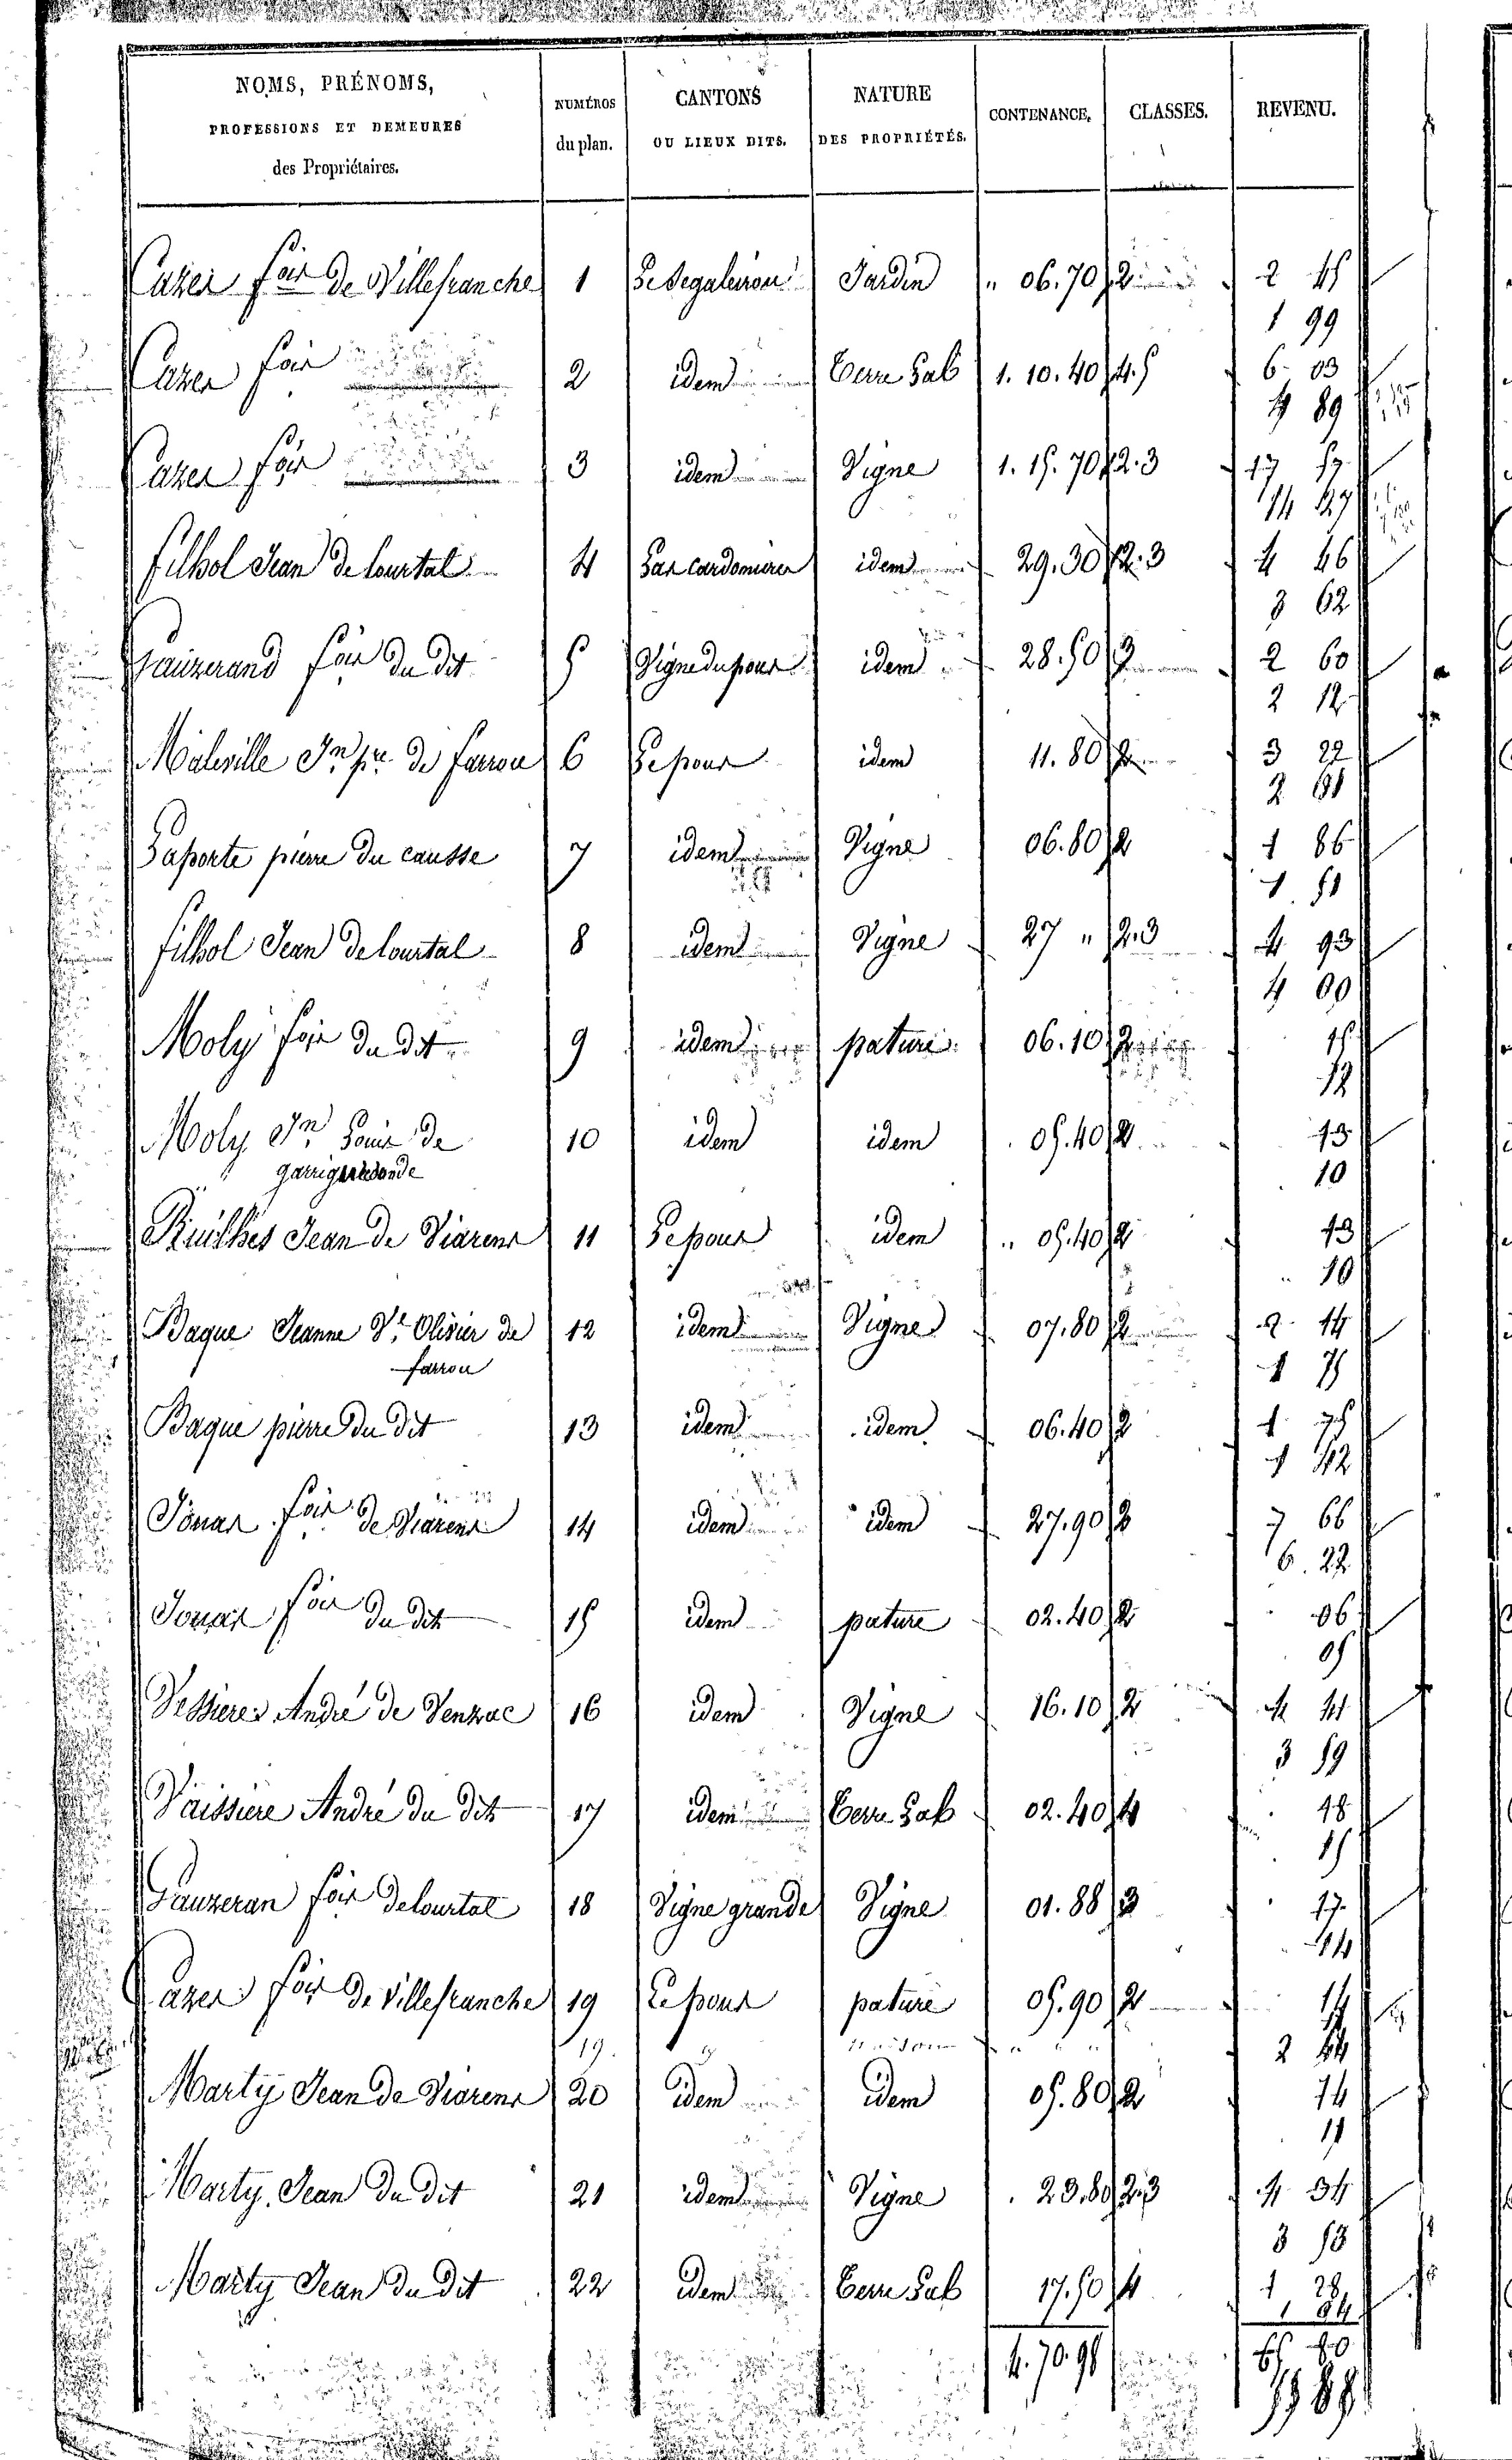 NOMS, PRÉNOMS, PROFESSIONS ET DEMEURES des Propriétaires. NUMÉROS du plan. CANTONS OU LIEUX DITS. NATURE DES PROPRIÉTÉS. CONTENANCE. CLASSES. REVENU.
Cazes fois de Villefranche 1 Jardin " 06.70 2 2 45
1 99
Cazes fois 2 idem Terre Lab 1. 10. 40 4.5 6 03
4 89
Cazes fois 3 idem Vigne 1. 15. 70 2.3 17 57
14 27
filhol Jean de lourtal 4 idem 29.30 2.3 4 46
3 62
Gauzerand fois du dit 5 Vigne du pour idem 28.50 3 2 60
2 12
Maleville Jn pre de farrou 6 Le pour idem 11.80 2 3 22
2 61
Laporte pierre du causse 7 idem Vigne 06.80 2 1 86
1 51
filhol Jean de lourtal 8 idem Vigne 27 " 2.3 4 93
4 00
Moly fois du dit 9 idem pature 06.10 2 15
12
Moly Jn Louis de 10 idem idem 05.40 2 13
10
Ruilhes Jean de Viarens 11 Le pour idem " 05.40 2 13
10
Baque Jeanne Ve Olivier de 12 idem Vigne 07.80 2 2 14
farrou 1 75
Baque pierre du dit 13 idem idem 06.40 2 1 75
1 42
Jonas fois de Viarens 14 idem idem 27.90 2 7 66
6 22
Jonas fois du dit 15 idem pature 02.40 2 06
05
Vessieres André de Venzac 16 idem Vigne 16.10 2 4 41
3 59
Vaissiere André du dit 17 idem Terre Lab 02.40 4 18
15
Gauzeran fois de lourtal 18 Vigne grande Vigne 01.88 3 17
14
Cazes fois de Villefranche 19 Le pour pature 05.90 2 14
19. " " "
2 44
Marty Jean de Viarens 20 idem idem 05.80 2 14
11
Marty Jean du dit 21 idem Vigne 23.80 2.3 4 34
3 53
Marty Jean du dit 22 idem Terre Lab 17.50 4 1 28
1 04
4.70.98 65 80
55 89